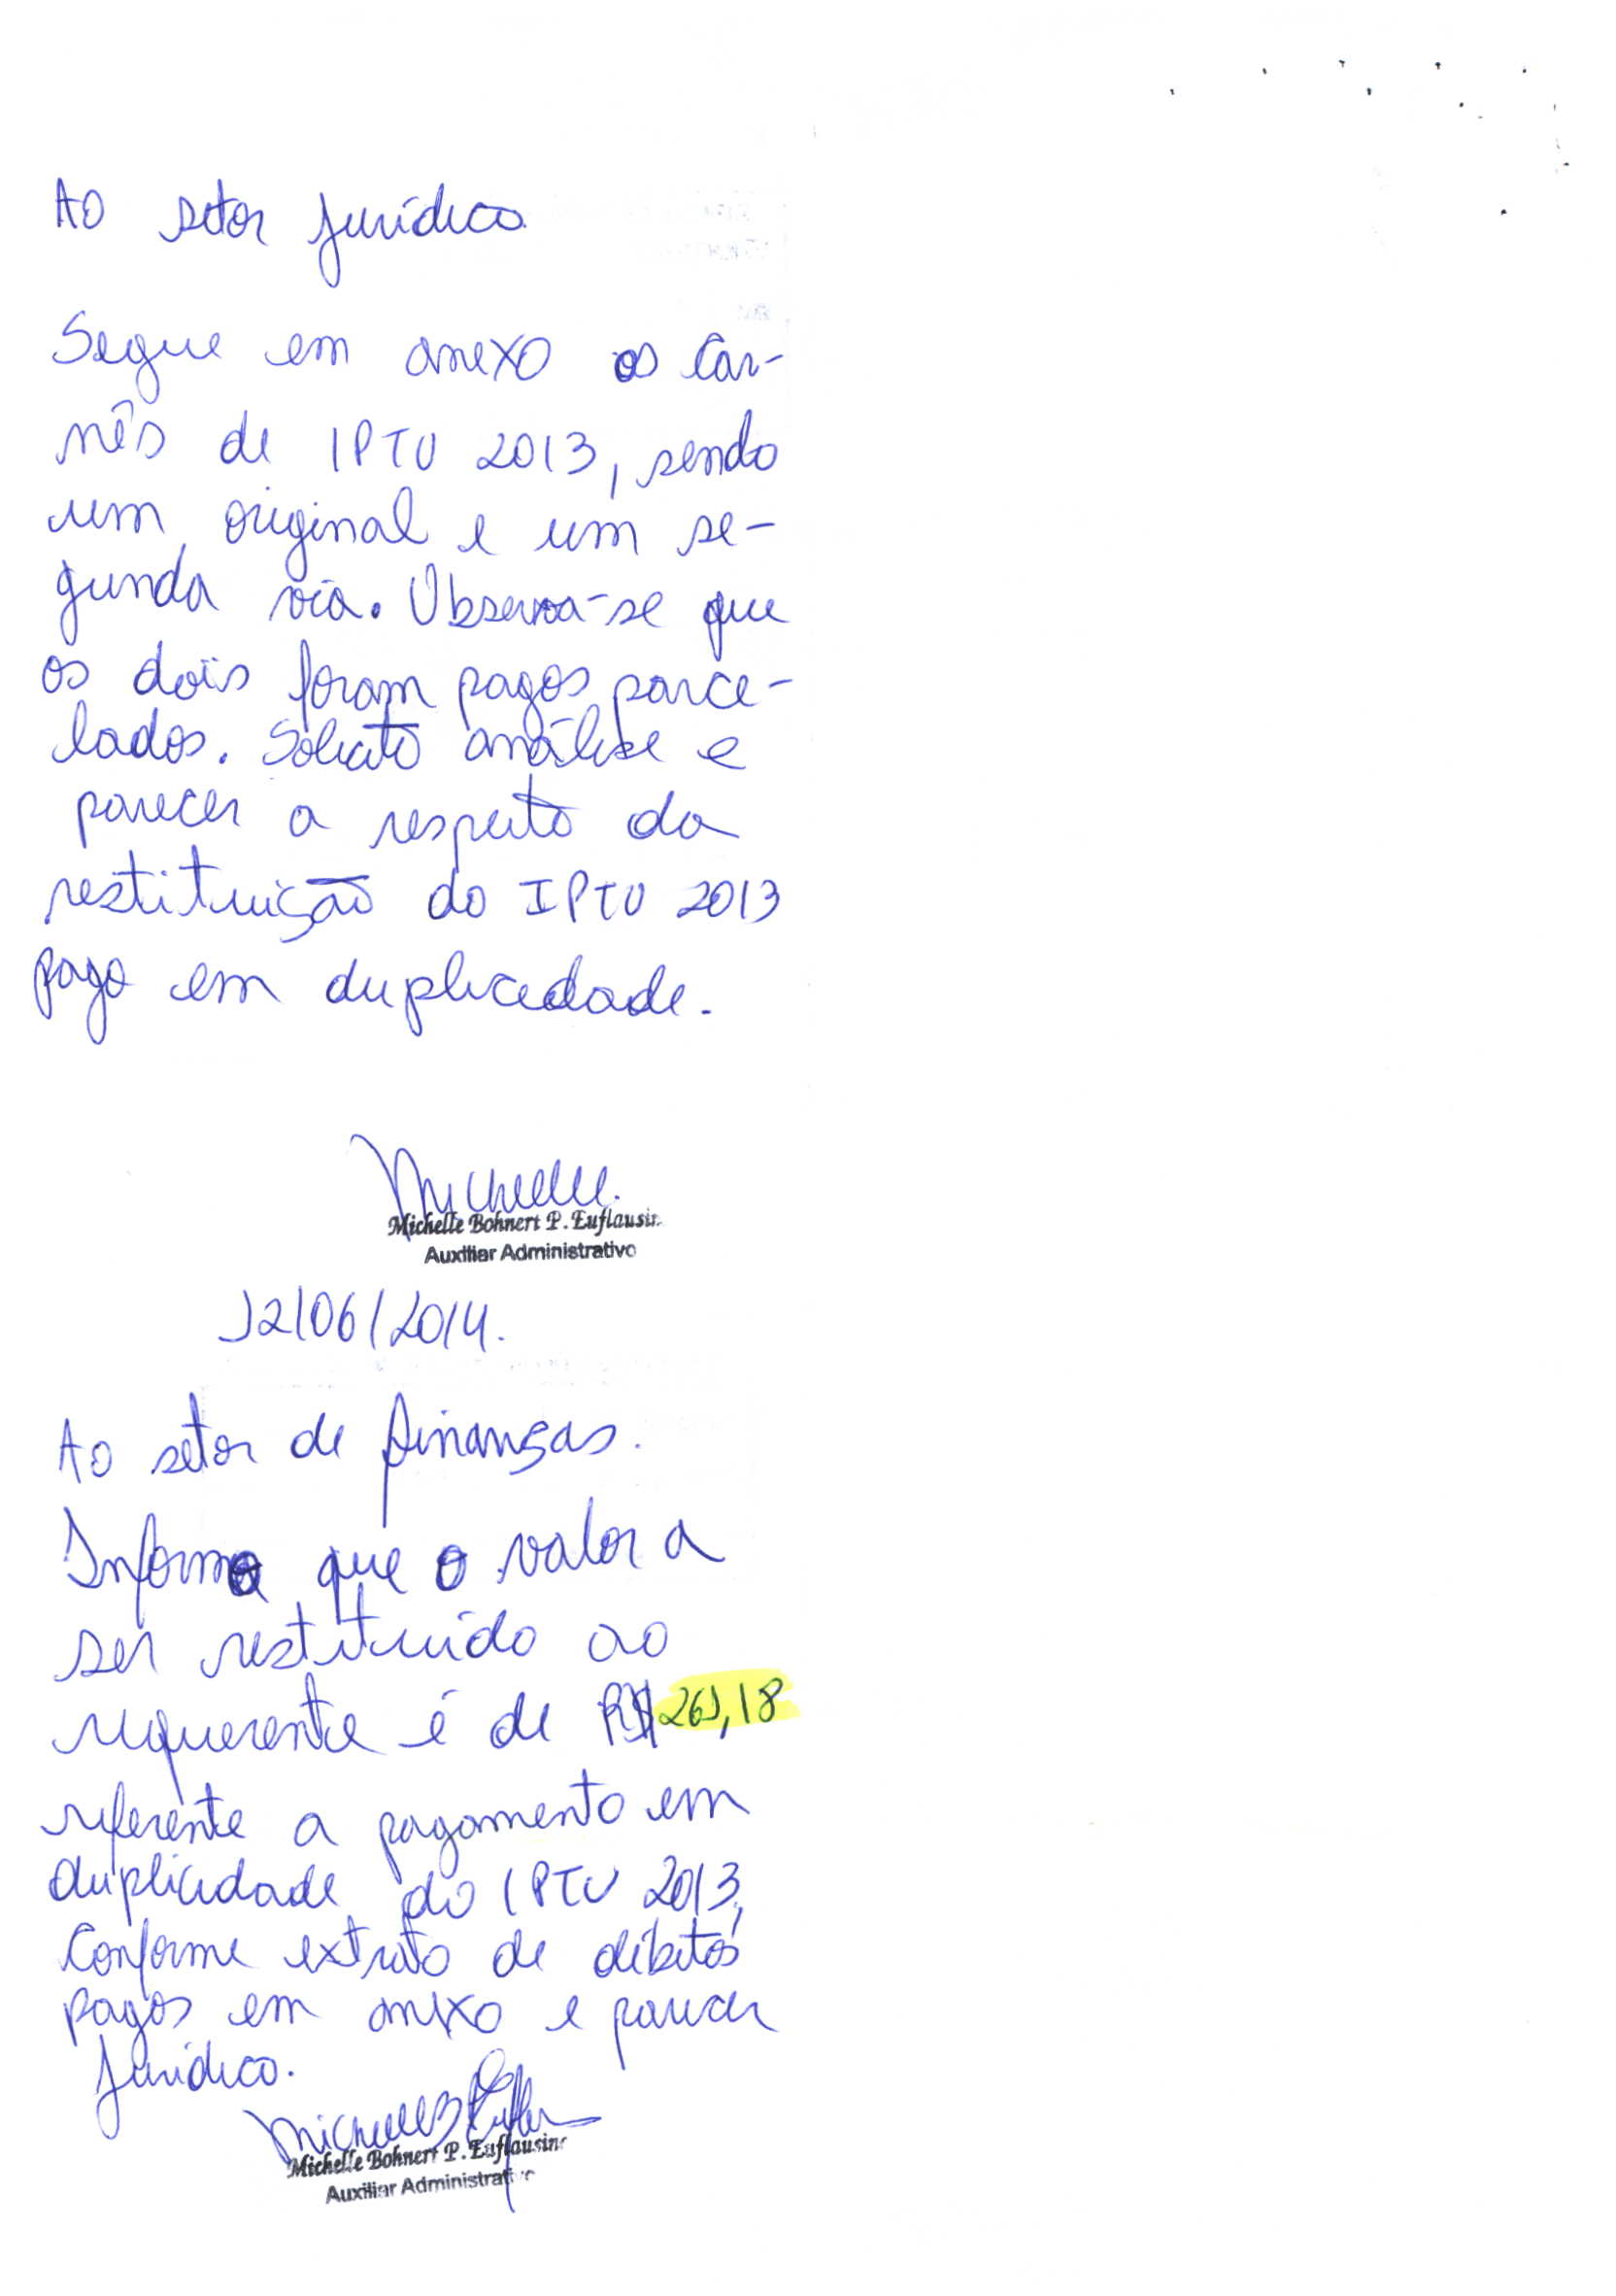 Ao setor jurídico
Segue em anexo os car-
nês de IPTU 2013, sendo
um original e um se-
gunda via. Observa-se que
os dois foram pagos parce-
lados. Solicito análise e
parecer a respeito da
restituição do IPTU 2013
pago em duplicidade.
Michelle.
Michelle Bohnert P. Euflausin
Auxiliar Administrativo
12/06/2014.
Ao setor de finanças.
Informo que o valor a
ser restituído ao
requerente é de R$ 261,18
referente a pagamento em
duplicidade do IPTU 2013,
Conforme extrato de débitos
pagos em anexo e parecer
jurídico.
Michelle B
Michelle Bohnert P. Euflausino
Auxiliar Administrativo